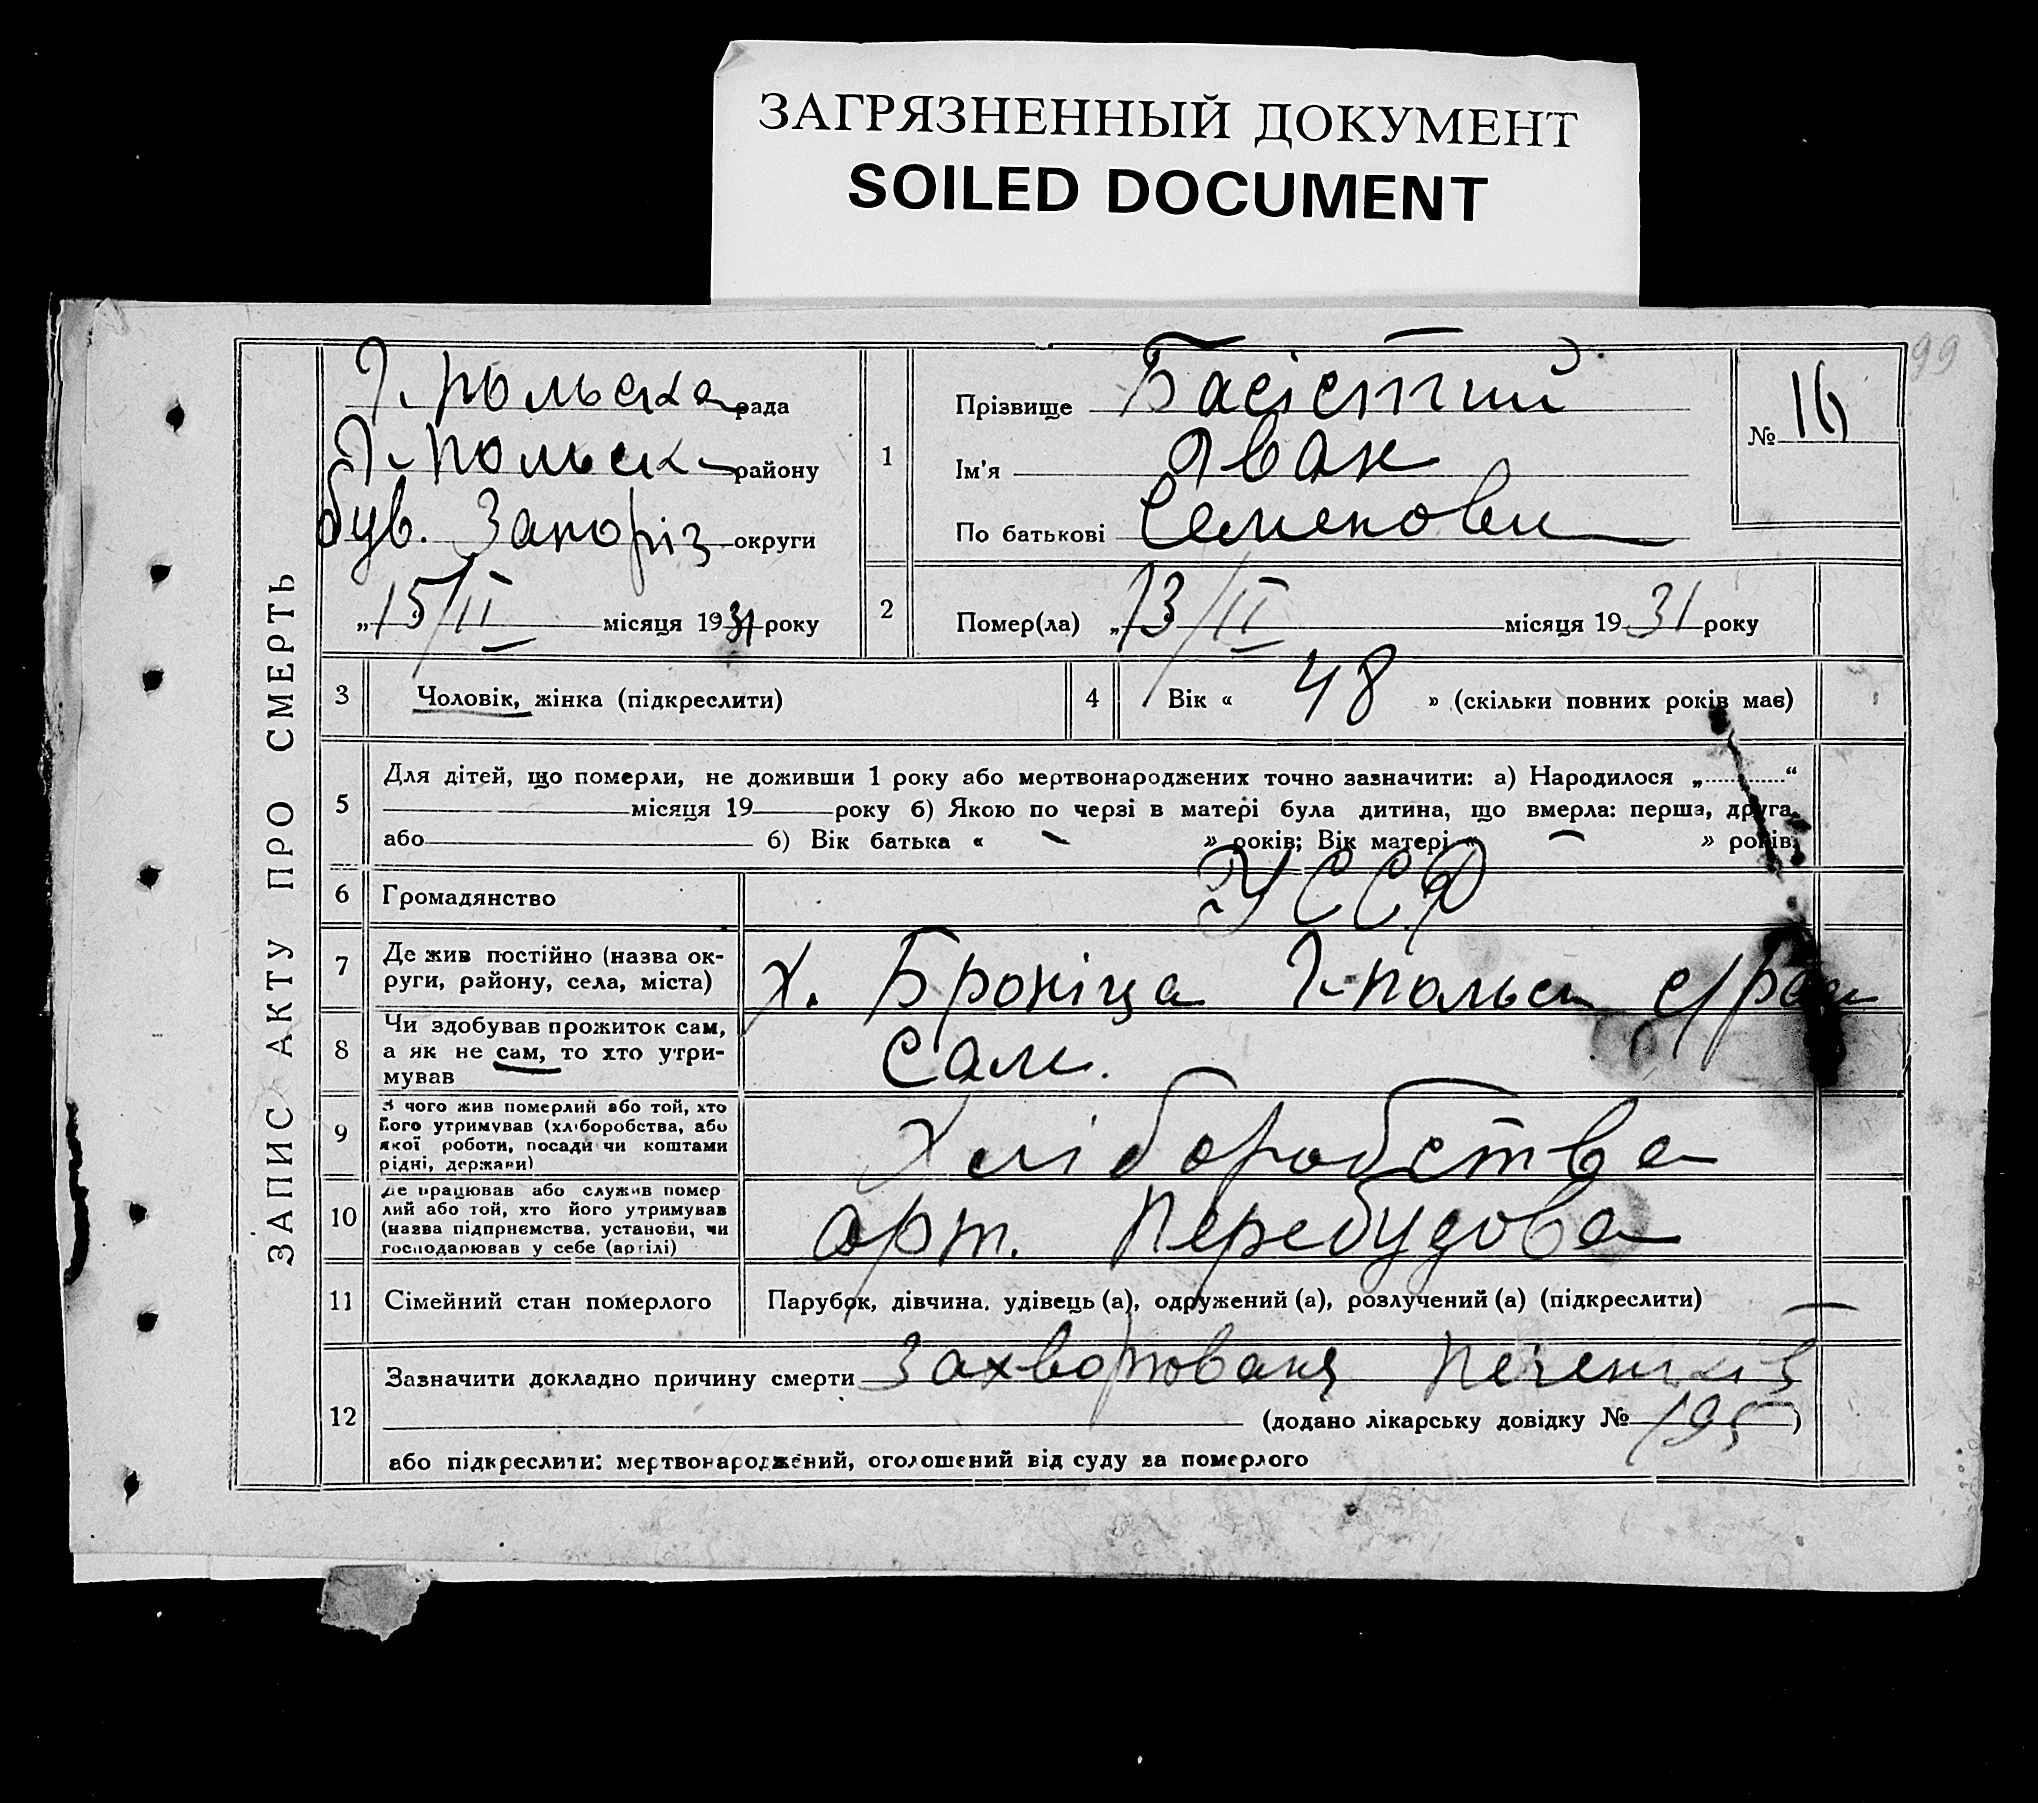 ЗАГРЯЗНЕННЫЙ ДОКУМЕНТ
SOILED DOCUMENT
99
ЗАПИС АКТУ ПРО СМЕРТЬ
Г-польська рада
Г-польськ району
був. Запоріз округи
„15/II місяця 1931 року
1
Прізвище Басістий
Ім'я Іван
По батькові Семенови
№ 16
2 Помер(ла) „13/II місяця 1931 року
3 Чоловік, жінка (підкреслити)
4 Вік « 48 » (скільки повних років має)
5 Для дітей, що померли, не доживши 1 року або мертвонароджених точно зазначити: а) Народилося „ “
місяця 19 року б) Якою по черзі в матері була дитина, що вмерла: перша, друга,
або б) Вік батька « - » років; Вік матері « - » років;
6 Громадянство УССР
7 Де жив постійно (назва ок-
руги, району, села, міста) х. Броніца Г-польськ с/рад
8 Чи здобував прожиток сам,
а як не сам, то хто утри-
мував Сам.
9 З чого жив померлий або той, хто
його утримував (хліборобства, або
якої роботи, посади чи коштами
рідні, держави) Хліборобства
10 Де працював або служив помер
лий або той, хто його утримував
(назва підприємства, установи, чи
господарював у себе (артілі) арт. Перебудова
11 Сімейний стан померлого Парубок, дівчина, удівець (а), одружений (а), розлучений (а) (підкреслити)
12 Зазначити докладно причину смерти Захворюваня печенків
(додано лікарську довідку № 195)
або підкреслити: мертвонароджений, оголошений від суду за померлого